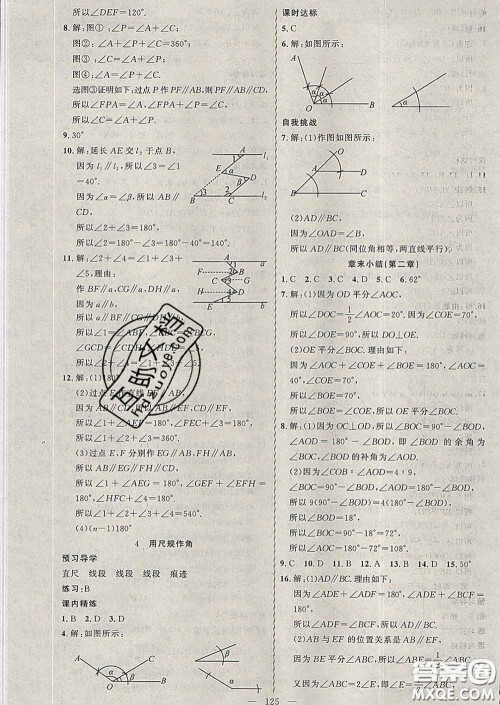 所以∠DEF=120°.
8.解:图①:∠P=∠A+∠C
图②:∠A+∠P+∠C=360°;
图③:∠A=∠P+∠C;
图④:∠C=∠A+∠P.
选图③证明如下:过点 P作 PF∥AB,则 PF∥CD,
所以∠FPA=∠A,∠FPC=∠C,
所以∠A=∠P+∠C.
9.30°
10.解:延长 AE 交 l₂ 于点 B,
因为 l₁∥l₂,所以∠3=∠1
=40°.
因为∠α=∠β,所以 AB∥
CD,
所以∠2+∠3=180°,
所以∠2=180°-∠3=180°-40°=140°.
11.解:∠1+∠3=∠2+∠4
+∠5.理由:
作 AB∥a,
因为 a∥b,
所以 a∥BF∥CG∥DH∥
所以∠1=∠ABF,∠FBC
∠GCD=∠CDH,∠HDE
所以∠1+∠3=∠2+∠4
12.解:(1)180°
因为 AB∥CD,AB∥EF,所以 CD∥EF,
所以∠1+∠2+∠3=360°.
(3)过点 E、F 分别作 EG、FH 平行于 AB,
所以 AB∥EG∥FH∥CD,
所以∠1+∠AEG=180°,∠GEF+∠EFH=180°,
∠HFC+∠4=180°,
所以∠1+∠2+∠3+∠4=540°.
(4)(n-1)180°
4 用尺规作角
预习导学
直尺 线段 线段 痕迹
练习:B
课内精练
1.B 2.D 3.D
4.解:如图所示:
课时达标
5.C
6.解:如图所示:
自我挑战
7.解:(1)作图如图所示:
(2)AD∥BC.
因为∠EAD=∠B,
所以 AD∥BC(同位角相等,两直线平行).
章末小结(第二章)
1.C 2.C 3.C 4.D 5.C 6.62°
7.解:(1)因为 OD 平分∠AOC,
所以∠DOC=1/2∠AOC=20°,因为∠COE=70°,
所以∠DOE=90°,所以 DO⊥OE.
(2)OE 平分∠BOC.理由如下:
因为∠AOC+∠COE+∠BOE=180°,
又因为∠AOC=40°,∠COE=70°,
所以∠BOE=70°,
所以∠BOE=∠COE,所以 OE 平分∠BOC.
8.解:(1)因为 OC⊥OD,所以∠BOC=90°-∠BOD,
∠AOD=180°-∠BOD,即∠BOD 的余角为
∠BOC,∠BOD 的补角为∠AOD.
(2)因为∠COB∶∠AOD=4∶9,
所以 9(90°-∠BOD)=4(180°-∠BOD),
所以∠BOD=18°,
所以∠BOC=90°-18°=72°,
所以∠AOC=180°-72°=108°.
9.C 10.A 11.D 12.C 13.A 14.D 15.50°
16.解:(1)AD∥BC.理由如下:
因为∠ADE+∠ADF=180°,∠ADE+∠BCF=
180°,
所以∠ADF=∠BCF,
所以 AD∥BC.
(2)AB 与 EF 的位置关系是 AB∥EF.
因为 BE 平分∠ABC,所以∠ABE=1/2∠ABC.
又因为∠ABC=2∠E,即∠E=1/2∠ABC,
125